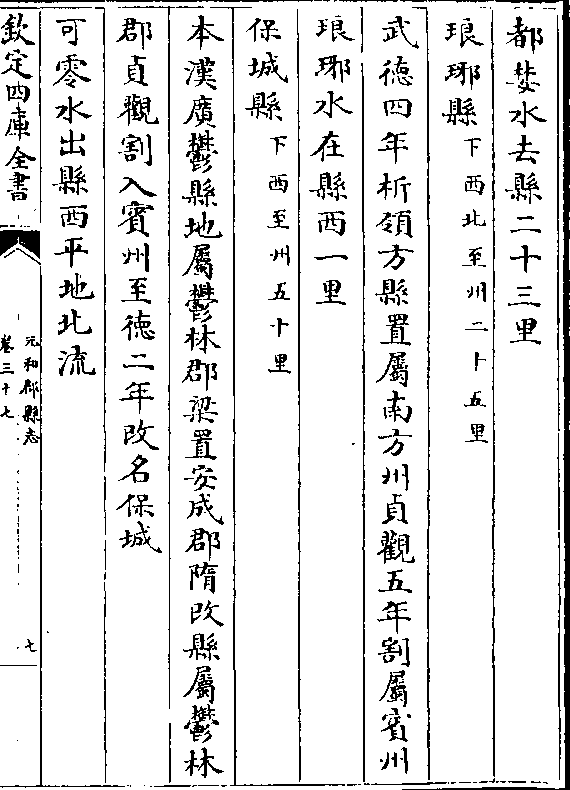 都婪水去縣二十三里
琅琊縣下西北至州二十五里
武徳四年析領方縣置屬南方州貞觀五年割屬賓州
琅琊水在縣西一里
保城縣下西至州五十里
本漢廣鬱縣地屬鬱林郡梁置安成郡隋改縣屬鬱林
郡貞觀割入賓州至徳二年改名保城
可零水出縣西平地北流
欽定四庫全書
元和郡縣志
卷三十七
七